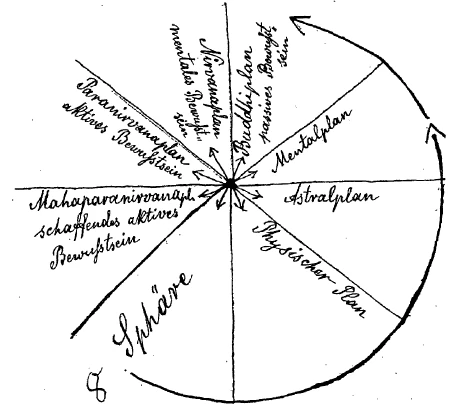 Physischer Plan
Astralplan
Mentalplan
Buddhiplan
passives Bewußt-
sein
Nirvanaplan
mentales Bewußt-
sein
Paranirvanaplan
aktives Bewußtsein
Mahaparanirvanapl.
schaffendes aktives
Bewußtsein
Sphäre
8